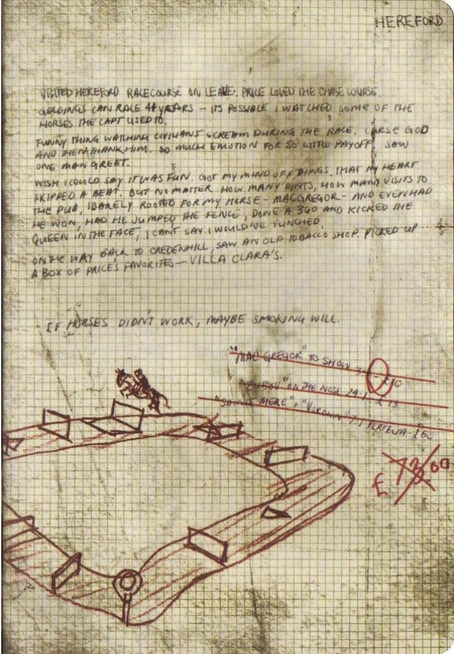 HEREFORD
VISITED HEREFORD RACECOURSE ON LEAVE. PRICE LOVED THE CHASE COURSE.
GELDINGS CAN RACE 4+ YEARS – IT'S POSSIBLE I WATCHED SOME OF THE
HORSES THE CAPT USED TO.
FUNNY THING WATCHING CIVILIANS SCREAM DURING THE RACE. CURSE GOD
AND THEN THANK HIM. SO MUCH EMOTION FOR SO LITTLE PAYOFF. SAW
ONE MAN GREET.
WISH I COULD SAY IT WAS FUN. GOT MY MIND OFF THINGS. THAT MY HEART
SKIPPED A BEAT. BUT NO MATTER HOW MANY PINTS, HOW MANY VISITS TO
THE PUB, I BARELY ROOTED FOR MY HORSE – MACGREGOR – AND EVEN HAD
HE WON, HAD HE JUMPED THE FENCE, DONE A 360 AND KICKED THE
QUEEN IN THE FACE, I CAN'T SAY I WOULD'VE FLINCHED.
ON THE WAY BACK TO CREDENHILL, SAW AN OLD TOBACCO SHOP. PICKED UP
A BOX OF PRICE'S FAVORITES – VILLA CLARA'S.
IF HORSES DIDN'T WORK, MAYBE SMOKING WILL.
"MAC GREGOR" TO SHOW
" ON THE NOSE